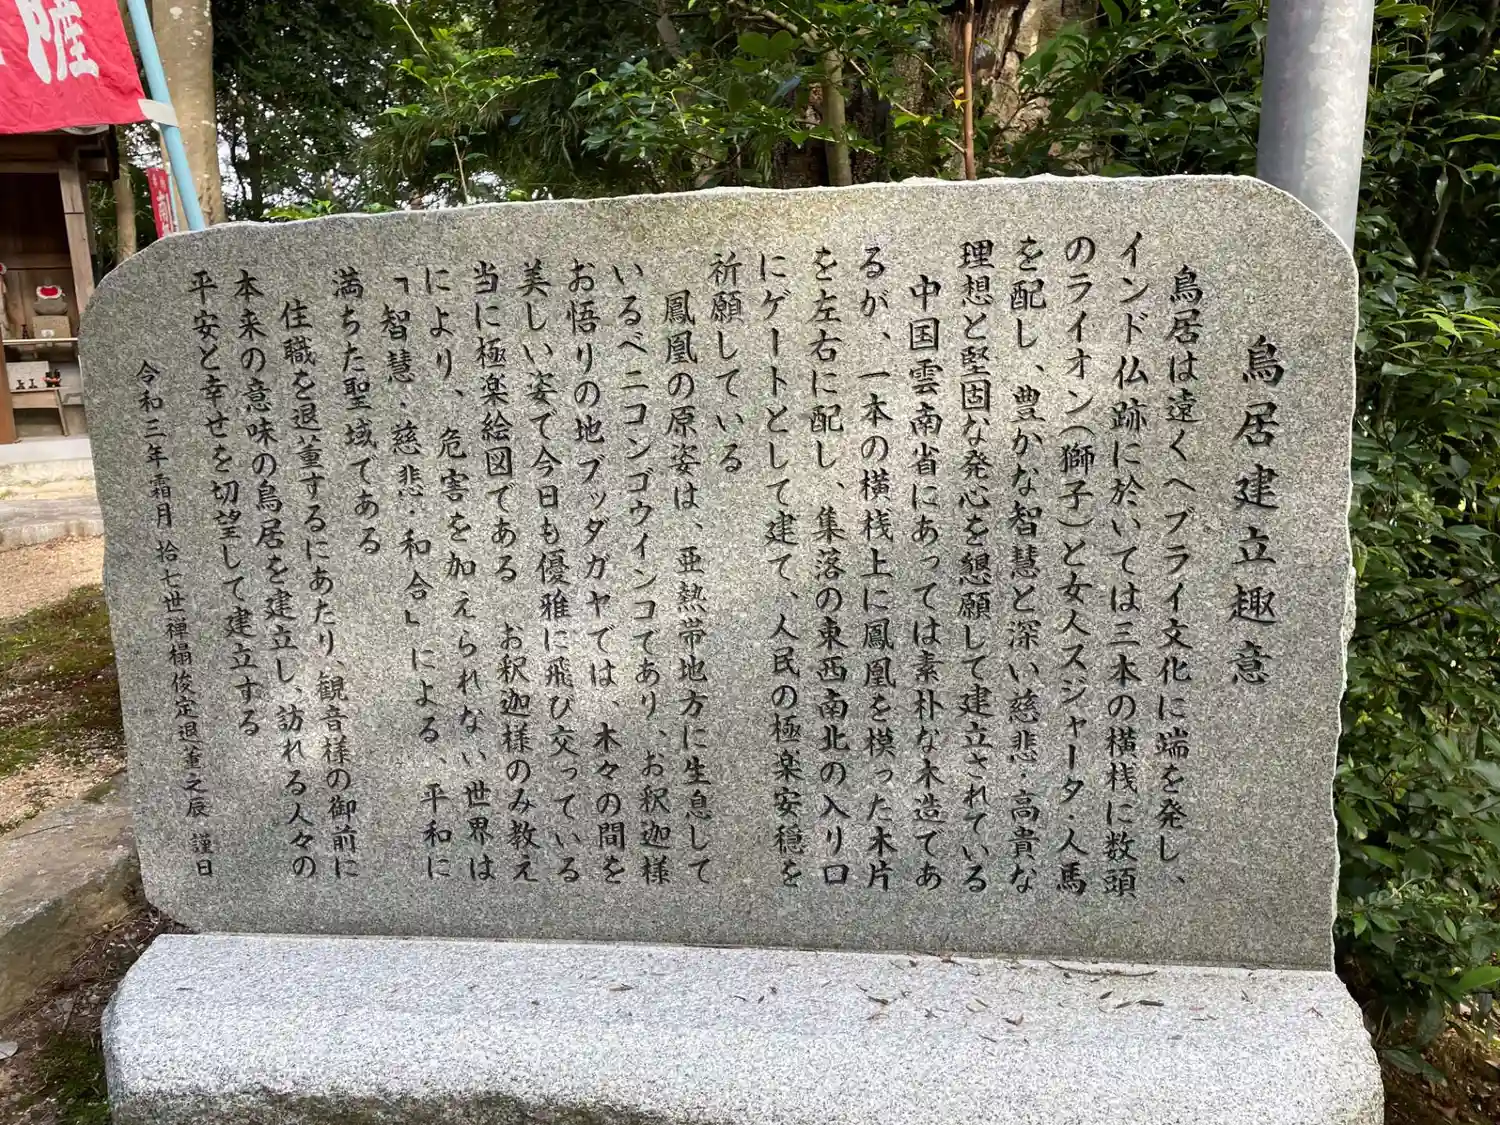 鳥居建立趣意
鳥居は遠くヘブライ文化に端を発し、
インド仏跡に於いては三本の横桟に数頭
のライオン(獅子)と女人スジャータ・人馬
を配し、豊かな智慧と深い慈悲・高貴な
理想と堅固な発心を懇願して建立されている
中国雲南省にあっては素朴な木造であ
るが、一本の横桟上に鳳凰を模った木片
を左右に配し、集落の東西南北の入り口
にゲートとして建て、人民の極楽安穏を
祈願している
鳳凰の原姿は、亜熱帯地方に生息して
いるベニコンゴウインコであり、お釈迦様
お悟りの地ブッダガヤでは、木々の間を
美しい姿で今日も優雅に飛び交っている
当に極楽絵図である お釈迦様のみ教え
により、危害を加えられない世界は
「智慧・慈悲・和合」による、平和に
満ちた聖域である
住職を退董するにあたり、観音様の御前に
本来の意味の鳥居を建立し、訪れる人々の
平安と幸せを切望して建立する
令和三年霜月 拾七世禅榻俊定退董之辰 謹日